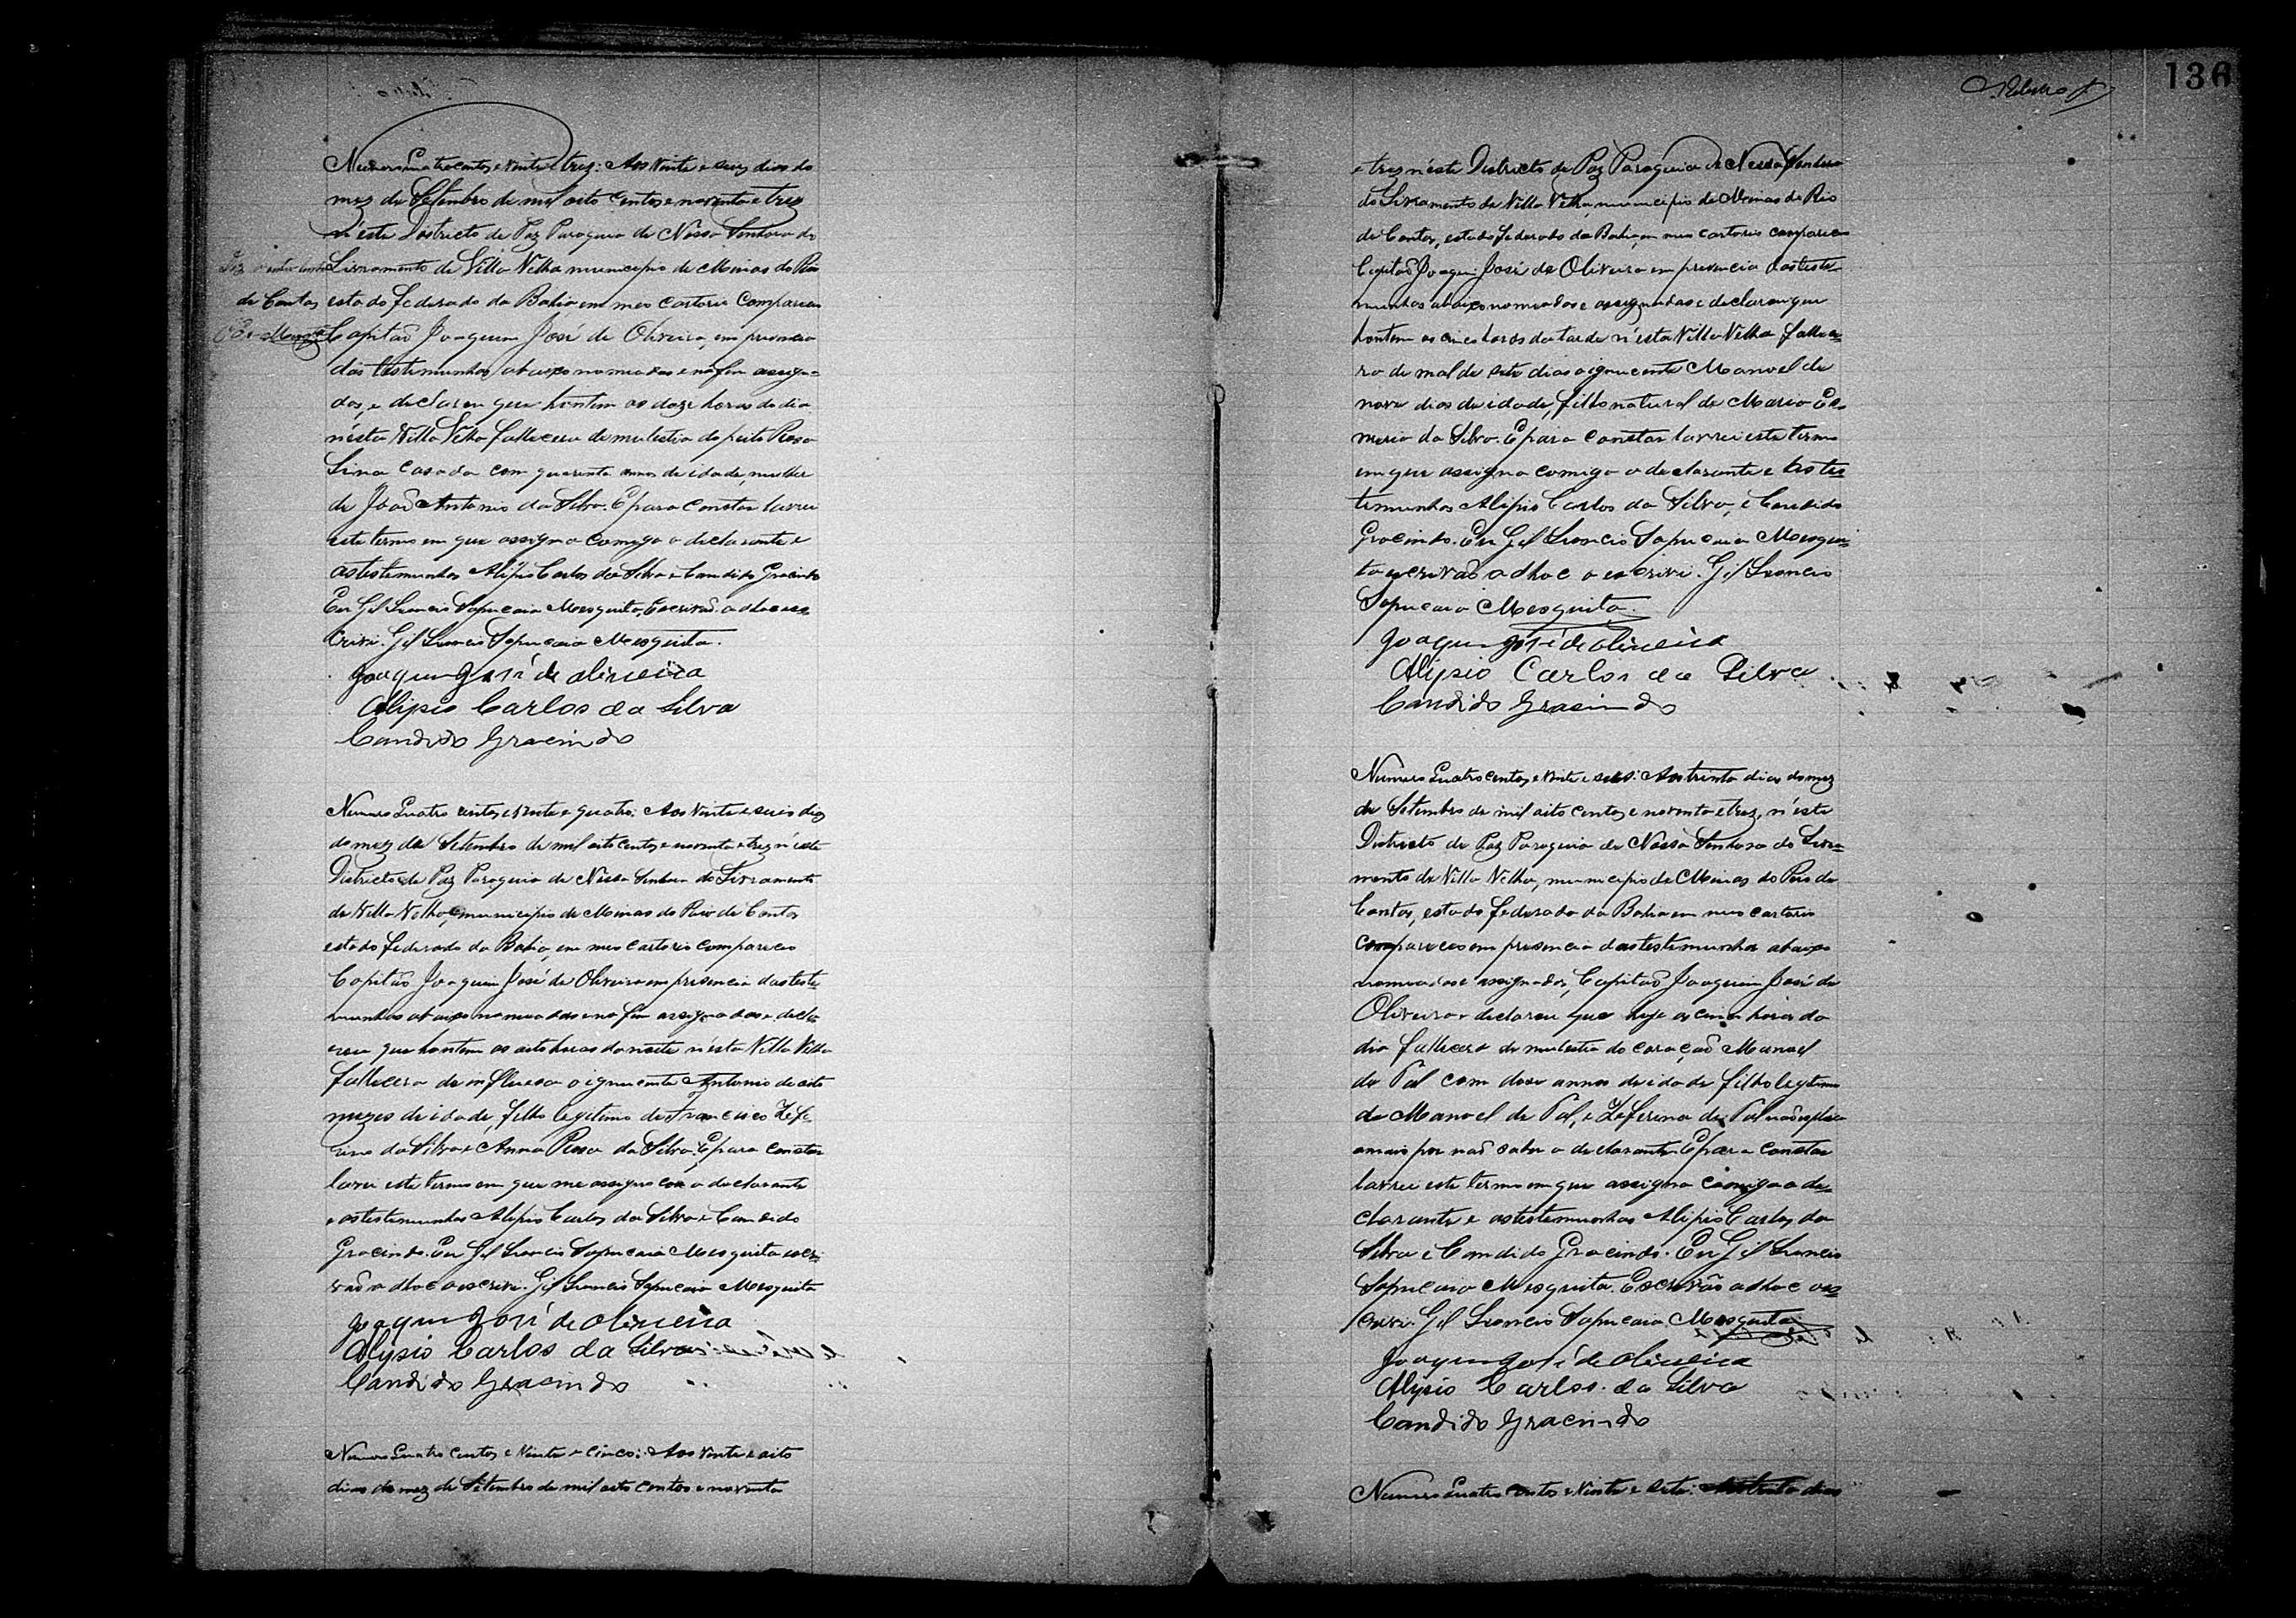 Numero Quatrocentos e Vinte e trez: Aos Vinte e seis dias do
mez de Setembro de mil oito centos e noventa e trez
n'este Destricto de Paz Paroquia de Nossa Senhora do
Livramento de Villa Velha municipio de Minas do Rio
de Contas, estado federado da Bahia, em meo cartorio compareceu
Capitaõ Joaquim José de Oliveira, em presencia
das testemunhas abaixo nomeadas e no fim assigna-
das, e declarou que hontem as doze horas do dia
n'esta Villa Velha fallecera de mulestia do peito Rosa
Lina casada com quarenta annos de idade, mulher
de Joaõ Antonio da Silva. E para constar lavrei
este termo em que assigna comigo o declarante e
as testemunhas Alipio Carlos da Silva e Candido Gracindo
Eu Gil Leoncio Sapucaia Mesquita, Escrivaõ adhoc o es-
crivi. Gil Leoncio Sapucaia Mesquita.
Joaquim José de oliveira
Alipio Carlos da Silva
Candido Gracindo
Numero Quatro centos e Vinte e quatro: Aos Vinte e seis dias
do mez de Setembro de mil oito centos e noventa e trez n'este
Districto de Paz Paroquia de Nossa Senhora do Livramento
de Villa Velha, municipio de Minas do Rio de Contas
estado federado da Bahia, em meo cartorio compareceo
Capitaõ Joaquim José de Oliveira em presencia das teste-
munhas abaixo nomeadas e no fim assignadas e decla
rou que hontem as oito horas da noite n'esta Villa Velha
fallecera de influesa o ignucente Antonio de oito
mezes de idade, filho legitimo de Francisco Zefe-
rino da Silva e Anna Rosa da Silva. E para constar
lavrei este termo em que me assigno com o declarante
e as testemunhas Alipio Carlos da Silva e Candido
Gracindo. Eu Gil Leoncio Sapucaia Mesquita escri-
vaõ adhoc o escrivi. Gil Leoncio Sapucaia Mesquita
Joaquim José de oliveira
Alypio Carlos da Silva
Candido Gracindo
Numero Quatro centos e Vinte e cinco: Aos Vinte e oito
dias do mez de Setembro de mil oito centos e noventa
136
e trez n'este Districto de Paz Paroquia de Nossa Senhora
do Livramento de Villa Velha, municipio de Minas do Rio
de Contas, estado federado da Bahia, em meo cartorio compareceo
Capitaõ Joaquim José de Oliveira em presencia das teste-
munhas abaixo nomeadas e assignadas e declarou que
hontem as cinco horas da tarde n'esta Villa Velha fallece-
ra de mal de sete dias o ignucente Manoel de
nove dias de idade, filho natural de Maria
da Silva. E para constar lavrei este termo
em que assigna comigo o declarante e as tes-
temunhas Alipio Carlos da Silva, e Candido
Gracindo. Eu Gil Leoncio Sapucaia Mesqui-
ta escrivaõ adhoc o escrivi. Gil Leoncio
Sapucaia Mesquita.
Joaquim José de oliveira
Alypio Carlos da Silva
Candido Gracindo
Numero Quatro centos e Vinte e seis: Aos trinta dias do mez
de Setembro de mil oito centos e noventa e trez, n'este
Districto de Paz Paroquia de Nossa Senhora do Livra-
mento de Villa Velha, municipio de Minas do Rio de
Contas, estado federado da Bahia em meo cartorio
compareceo em presencia das testemunhas abaixo
nomeadas e assignadas, Capitaõ Joaquim José de
Oliveira e declarou que hoje as cinco horas do
dia fallecera de mulestia do coraçaõ Manoel
de Pal com doze annos de idade filho legitimo
de Manoel de Pal, e Zeferina de Pal naõ
amais por naõ saber o declarante. E para constar
lavrei este termo em que assigna comigo o de-
clarante e as testemunhas Alipio Carlos da
Silva e Candido Gracindo. Eu Gil Leoncio
Sapucaia Mesquita. Escrivaõ adhoc o es-
crivi. Gil Leoncio Sapucaia Mesquita
Joaquim José de oliveira
Alypio Carlos da Silva
Candido Gracindo
Numero Quatro cento e Vinte e sete: dias